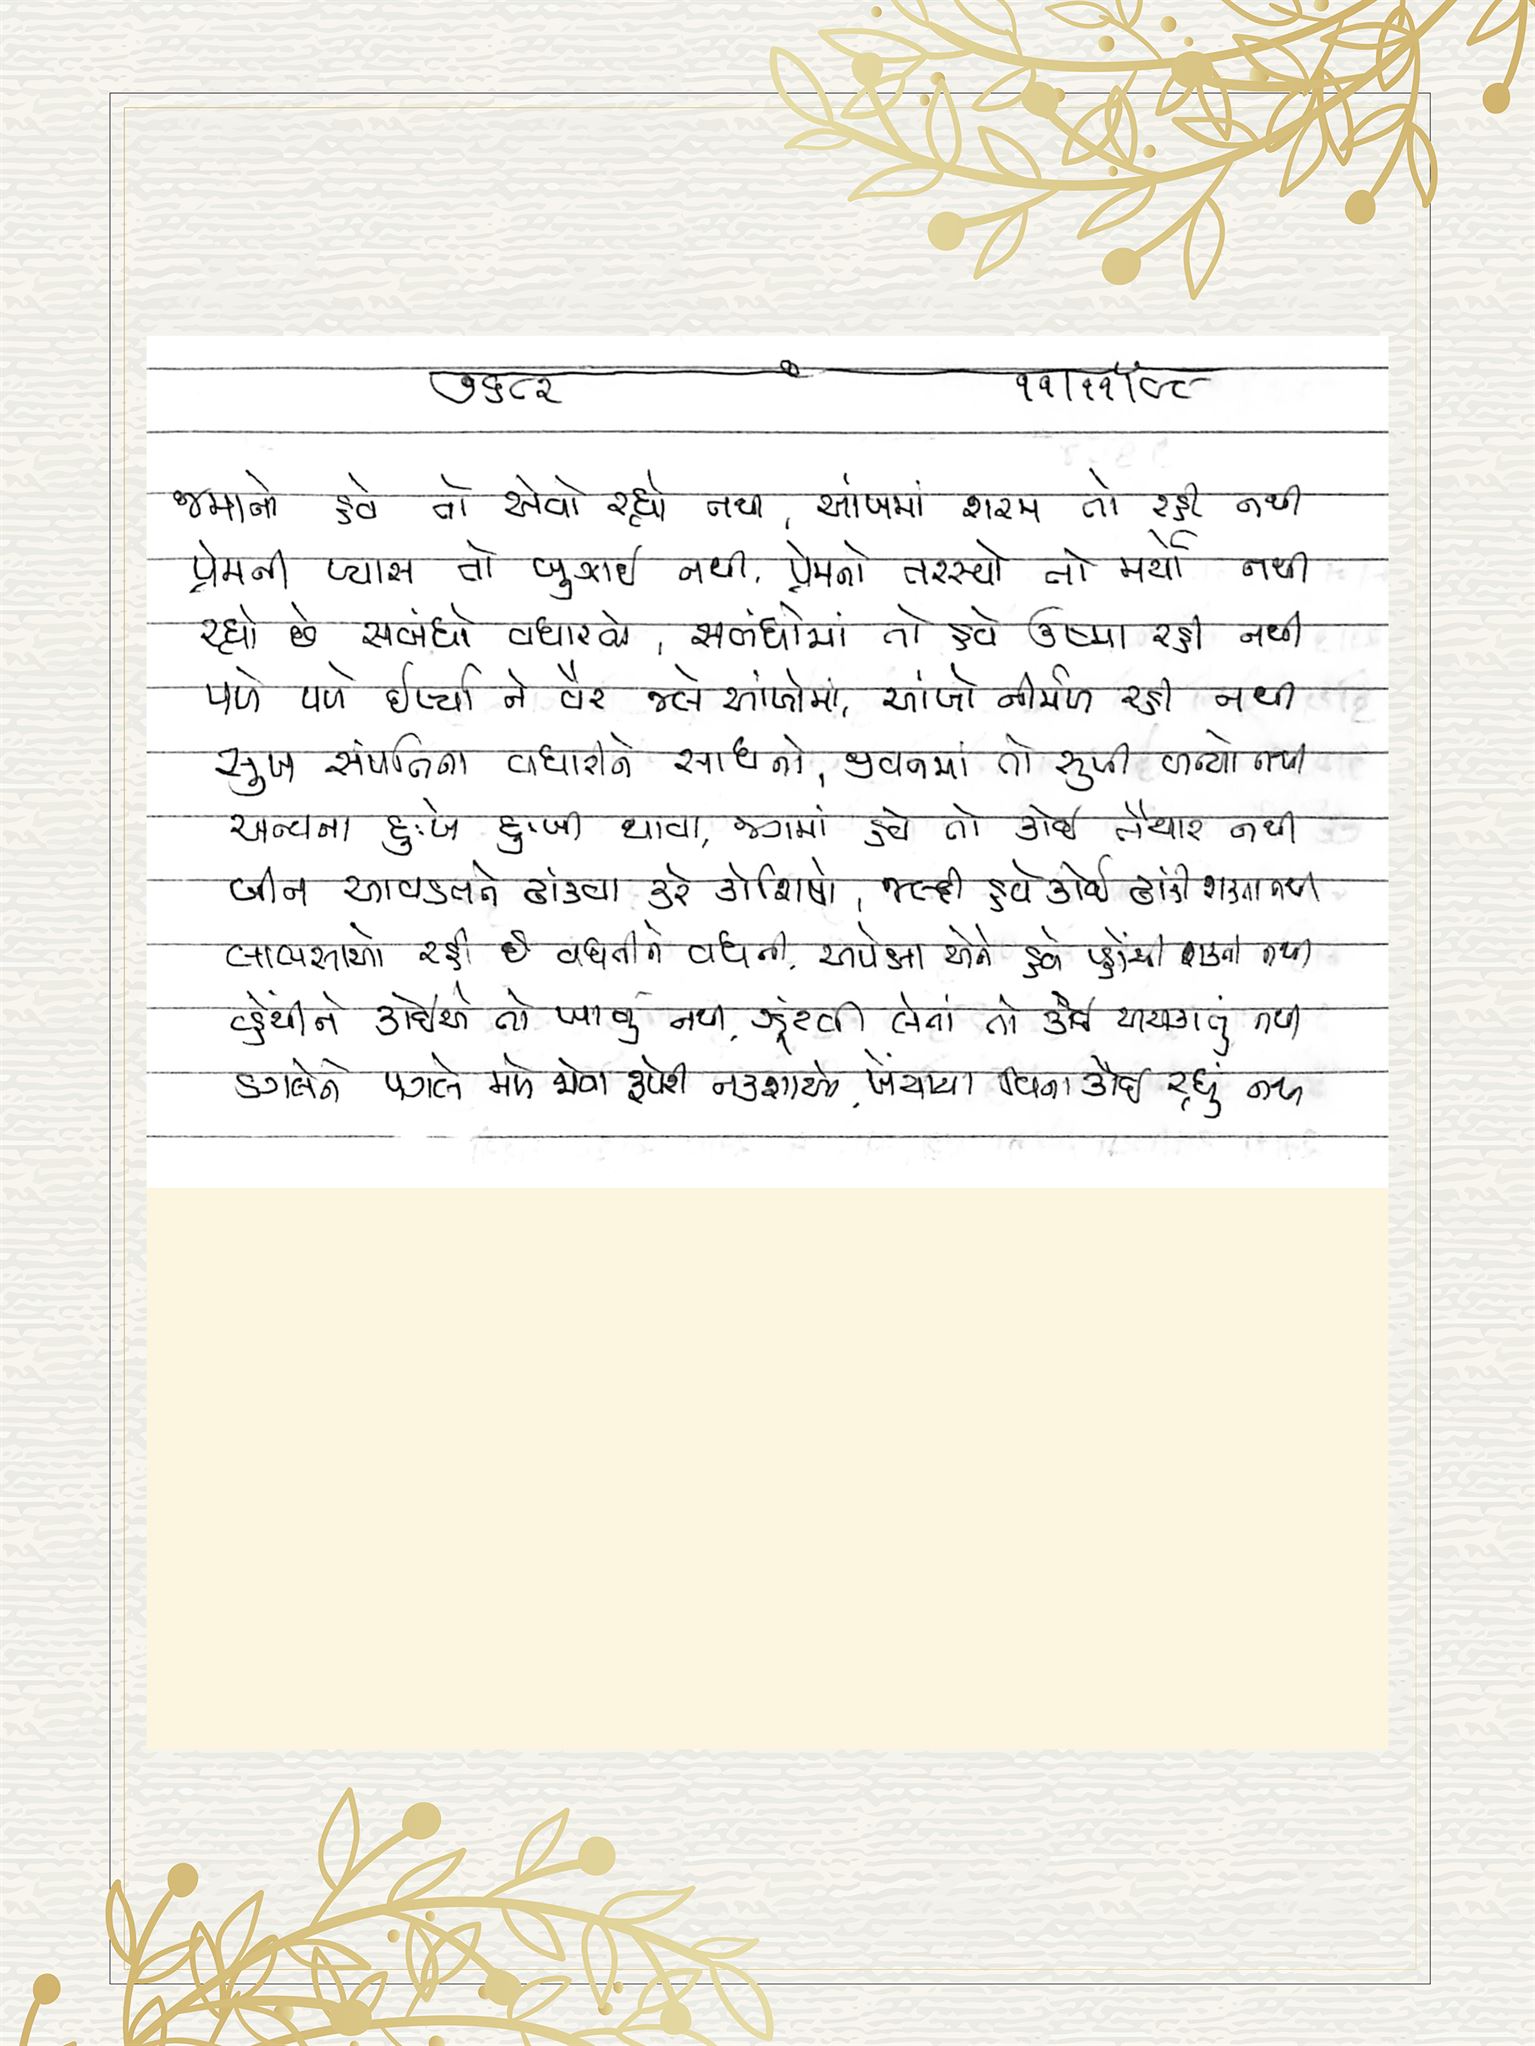 ૭૬૮૨ ૧૧/૧૧/૯૮
જમાનો હવે તો એવો રહ્યો નથી, આંખમાં શરમ તો રહી નથી
પ્રેમની પ્યાસ તો બુઝાઈ નથી, પ્રેમનો તરસ્યો તો મર્યો નથી
રહ્યો છે સબંધો વધારવો, સબંધોમાં તો હવે ઉષ્મા રહી નથી
પળે પળે ઈર્ષ્યા ને વૈર જલે આંખોમાં, આંખો નીર્મળ રહી નથી
સુખ સંપત્તિના વધારીને સાધનો, જીવનમાં તો સુખી બન્યો નથી
અન્યના દુઃખે દુઃખી થાવા, જગમાં હવે તો કોઈ તૈયાર નથી
બીન આવડતને ઢાંકવા કરે કોશિષો, જલ્દી હવે કોઈ ઢાંકી શકતા નથી
લાલસાઓ રહી છે વધતીને વધતી, અપેક્ષા એને હવે પ્હોંચી શકતી નથી
વ્હેંચીને કોઈએ તો ખાવું નથી, ઝૂંટવી લેતાં તો કોઈ અચકાતું નથી
ડગલેને પગલે મળે એવા રૂપેરી નકશાઓ, ખેંચાયા વિના કોઈ રહ્યું નથી